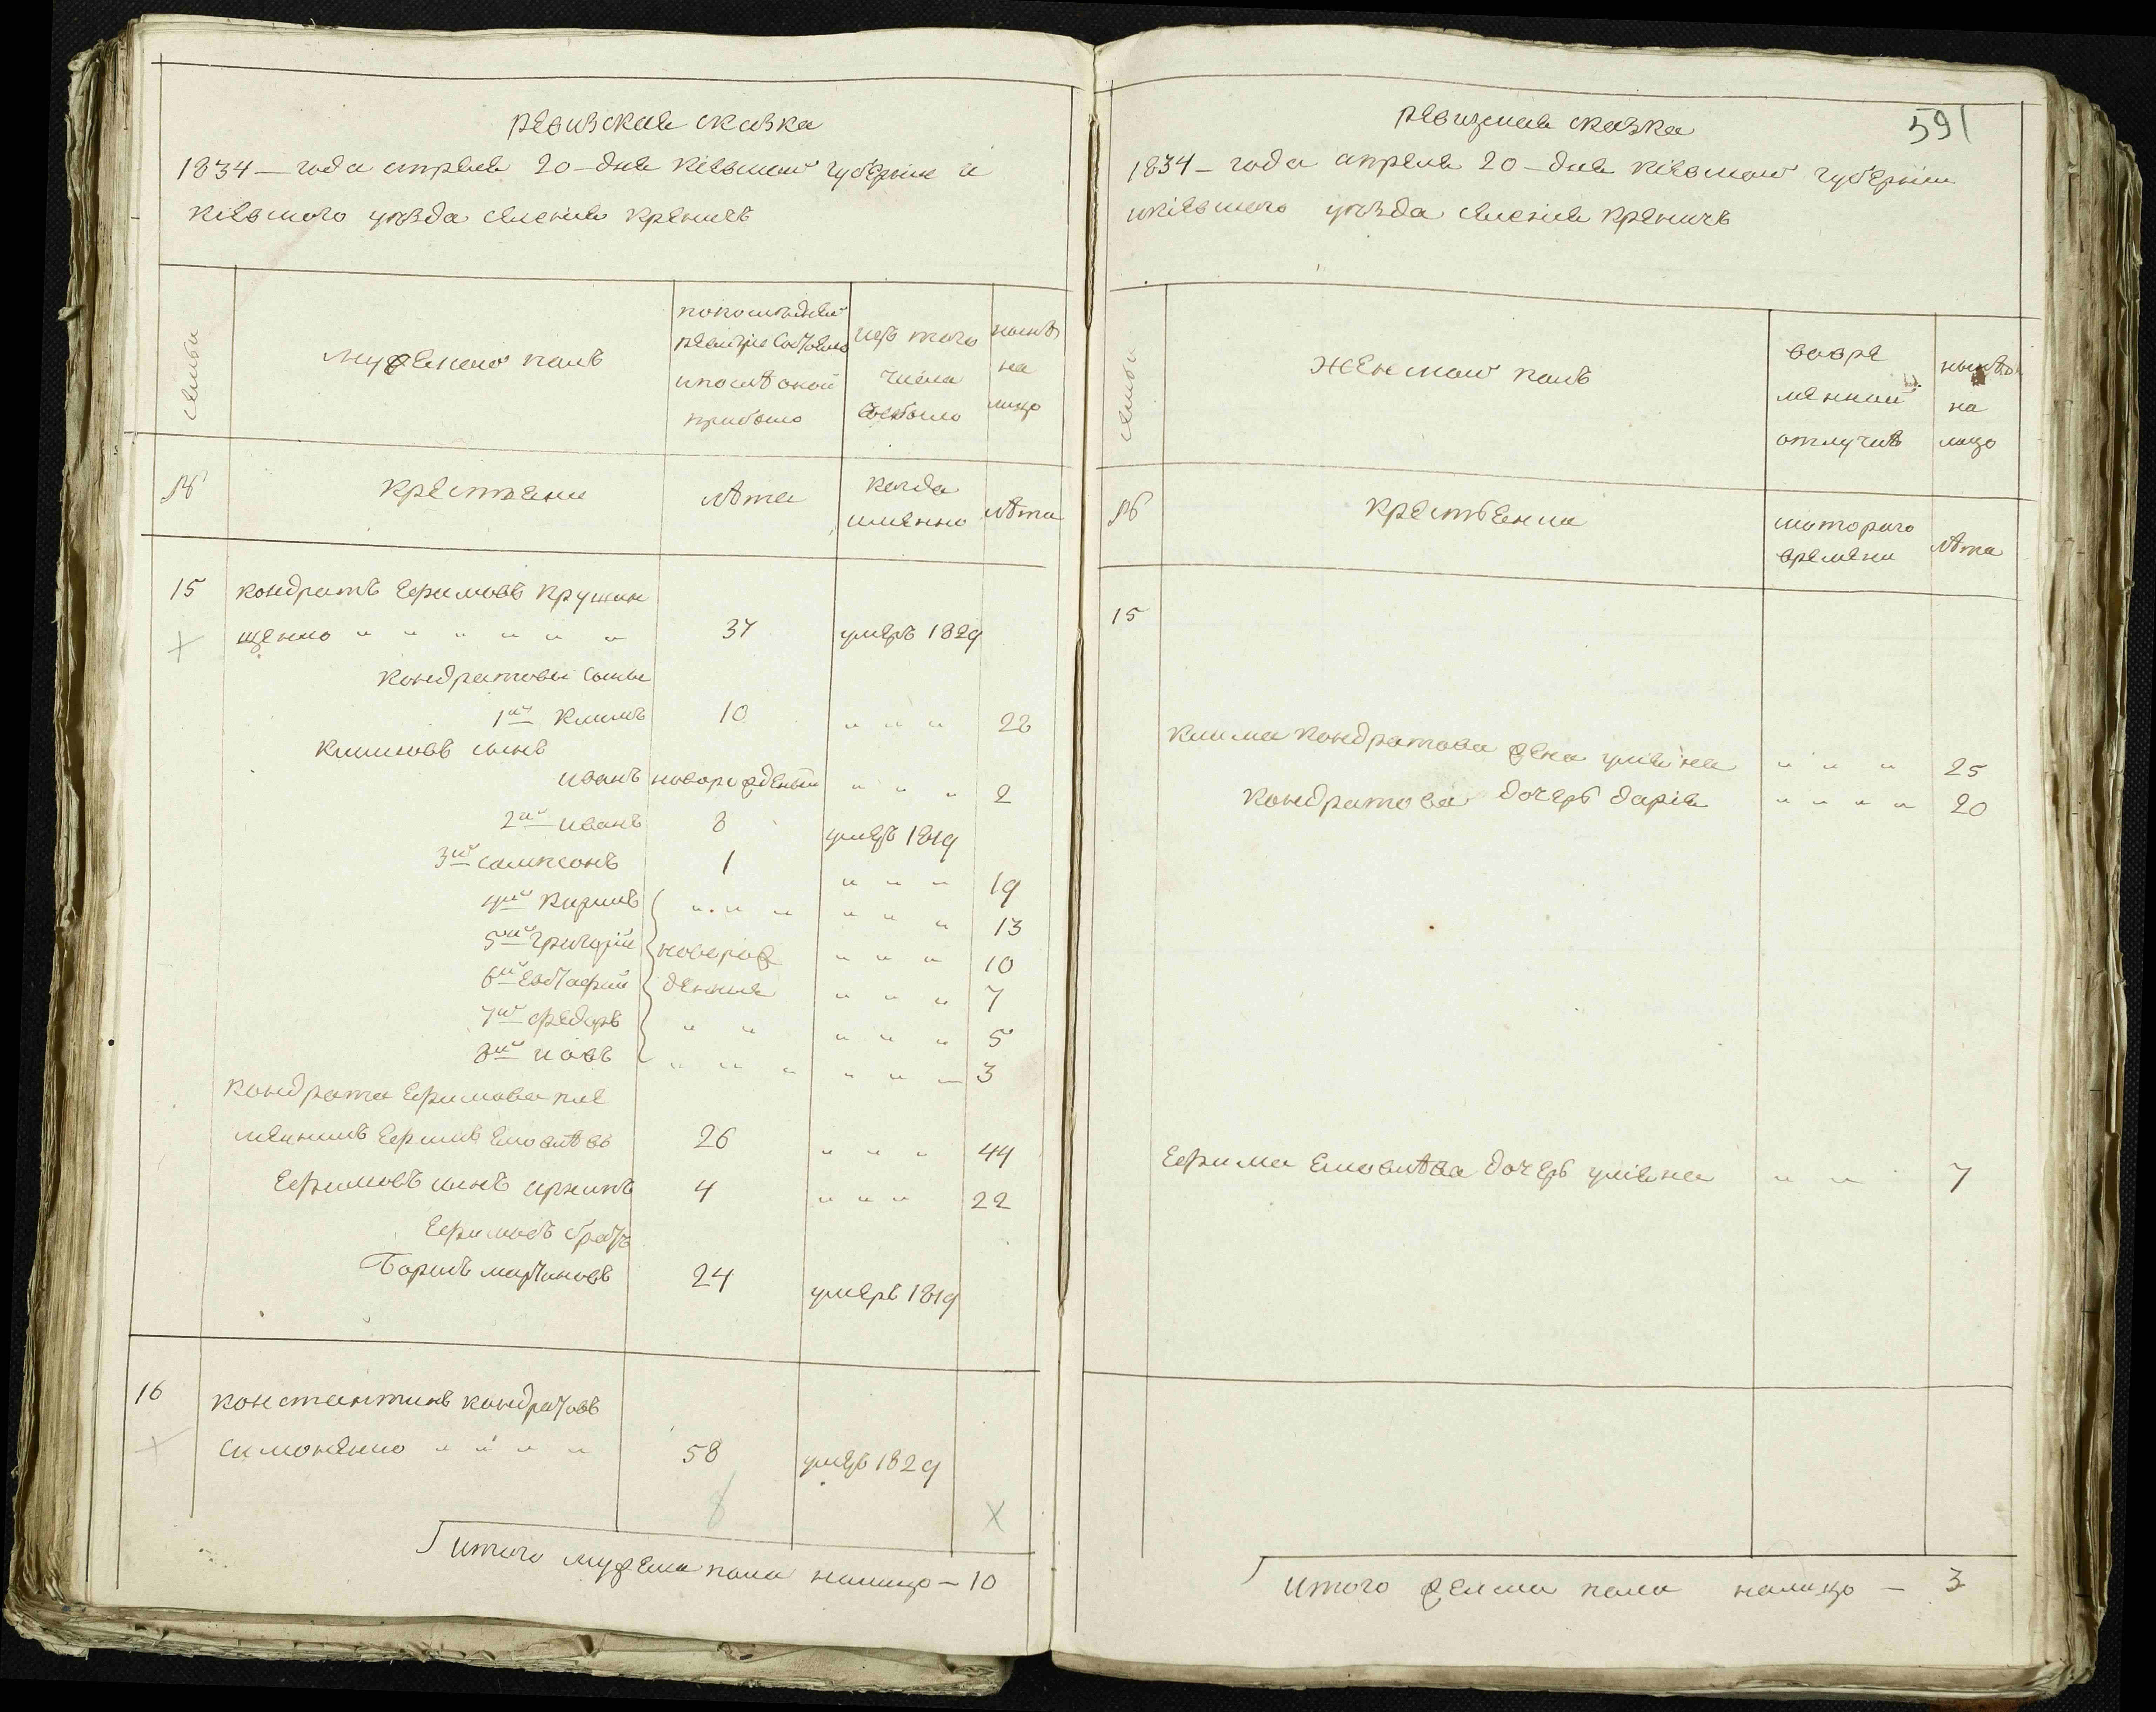 ревизская сказка
1834 – года апреля 20 – дня Кіевской губерніи и
Кіевского уѣзда селенія Креничъ
семьи
мужеского полъ
попоследней
ревизіе состояло
ипослѣ оной
прибыло
изъ того
числа
выбыло
нынѣ
на
лицо
№
крестьяни
лѣта
когда
именно
лѣта
15 Кондратъ Ефимовъ
щенко " " " " " " 37 умеръ 1829
Кондратовы сыны
1й Климъ 10 " " " 28
Климовъ сынъ
иванъ новорожденый " " " 2
2й иванъ 8 умеръ 1819
3й сампсонъ 1 " " " 19
4й " " " " " " 13
5й григорій новорож " " " 10
6й Евстафий денния " " " 7
7й федоръ " " " " " 5
8й иовъ " " " " " – 3
Кондрата Ефимова пле
мянникъ Ефимъ 26 " " " 44
Ефимовъ сынъ архипъ 4 " " " 22
Ефимовъ братъ
Борисъ мартиновъ 24 умеръ 1819
16 константинъ кондратовъ
симоненко " " " " 58 умеръ 1829
8 X
итого мужеска пола налицо – 10
591
ревизская сказка
1834 – года апреля 20 – дня Кіевской губерніи
икіевского уѣзда селенія Креничъ
семьи
женской полъ
вовре
менной
отлучкѣ
нынѣ
на
лицо
№
крестьенка
скоторого
времени
лѣта
15
Клима Кондратова жена улияна " " " 25
Кондратова дочерь дарія " " " " 20
Ефима дочерь улияна " " 7
итого женска пола налицо – 3